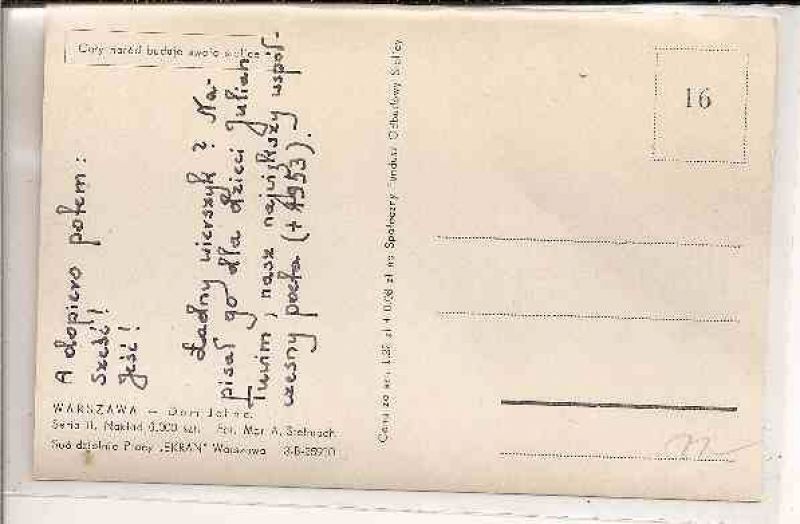 Cały naród buduje swoją stolicę
A dopiero potem:
Sześć!
Jeść!
Ładny wierszyk? Na-
pisał go dla dzieci Julian
Tuwim, nasz największy współ-
czesny poeta (+1953).
WARSZAWA –
Seria II. Nakład 3.000 szt. Fot. Mgr A. Stelmach.
Spółdzielnia Pracy „EKRAN" Warszawa
na Społeczny Fundusz Odbudowy Stolicy
16